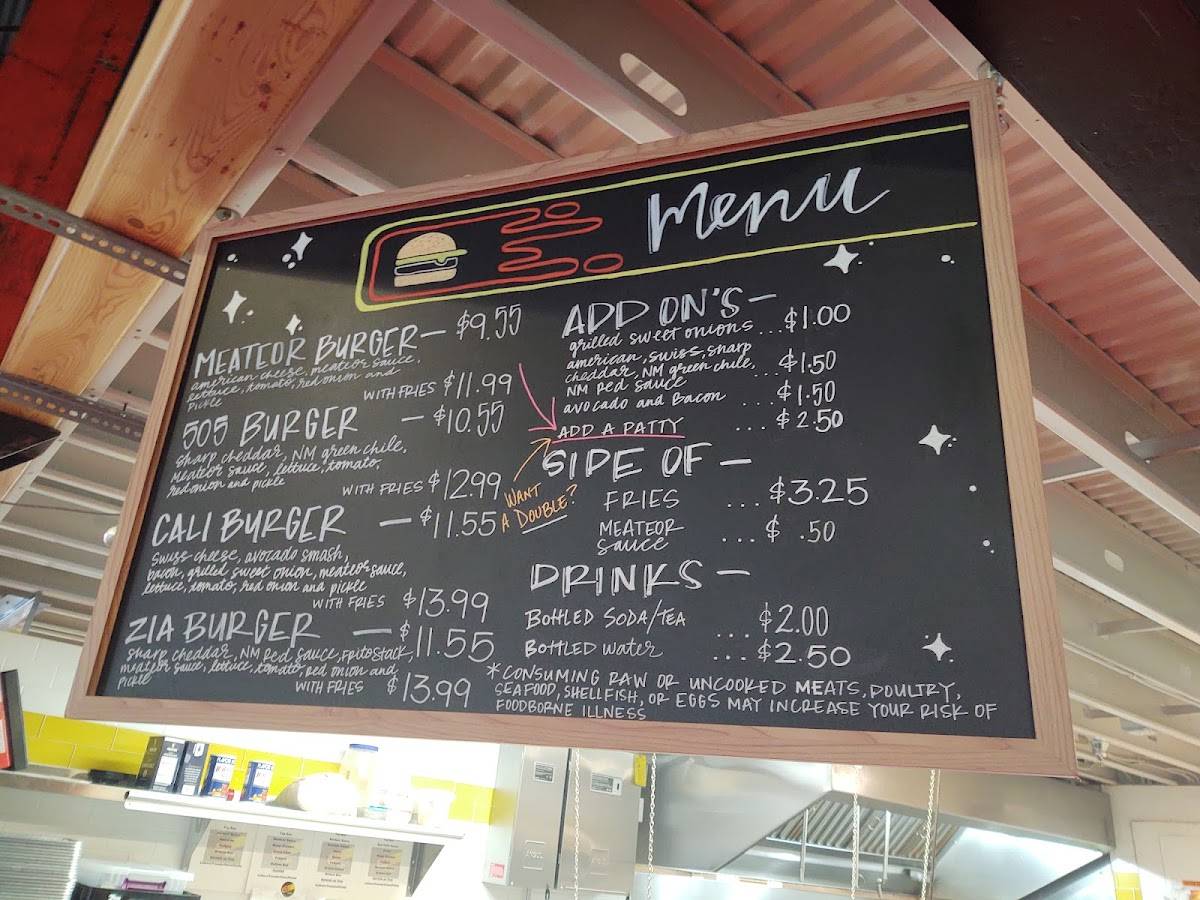 Menu
MEATEOR BURGER — $9.55
american cheese, meateor sauce,
lettuce, tomato, red onion and
pickle
WITH FRIES $11.99
505 BURGER — $10.55
sharp cheddar, NM green chile,
meateor sauce, lettuce, tomato,
red onion and pickle
WITH FRIES $12.99
CALI BURGER — $11.55
swiss cheese, avocado smash,
bacon, grilled sweet onion, meateor sauce,
lettuce, tomato, red onion and pickle
WITH FRIES $13.99
ZIA BURGER — $11.55
sharp cheddar, NM Red Sauce, Frito Stack,
meateor sauce, lettuce, tomato, red onion and
pickle
WITH FRIES $13.99
ADD ON'S —
grilled sweet onions ... $1.00
american, swiss, sharp
cheddar, NM green chile, ... $1.50
NM Red sauce
avocado and Bacon ... $1.50
ADD A PATTY ... $2.50
WANT
A DOUBLE?
SIDE OF —
FRIES ... $3.25
MEATEOR
Sauce ... $ .50
DRINKS —
BOttLED SODA/TEA ... $2.00
BOttLED Water ... $2.50
* CONSUMING RAW OR UNCOOKED MEATS, POULTRY,
SEAFOOD, SHELLFISH, OR EGGS MAY INCREASE YOUR RISK OF
FOODBORNE ILLNESS